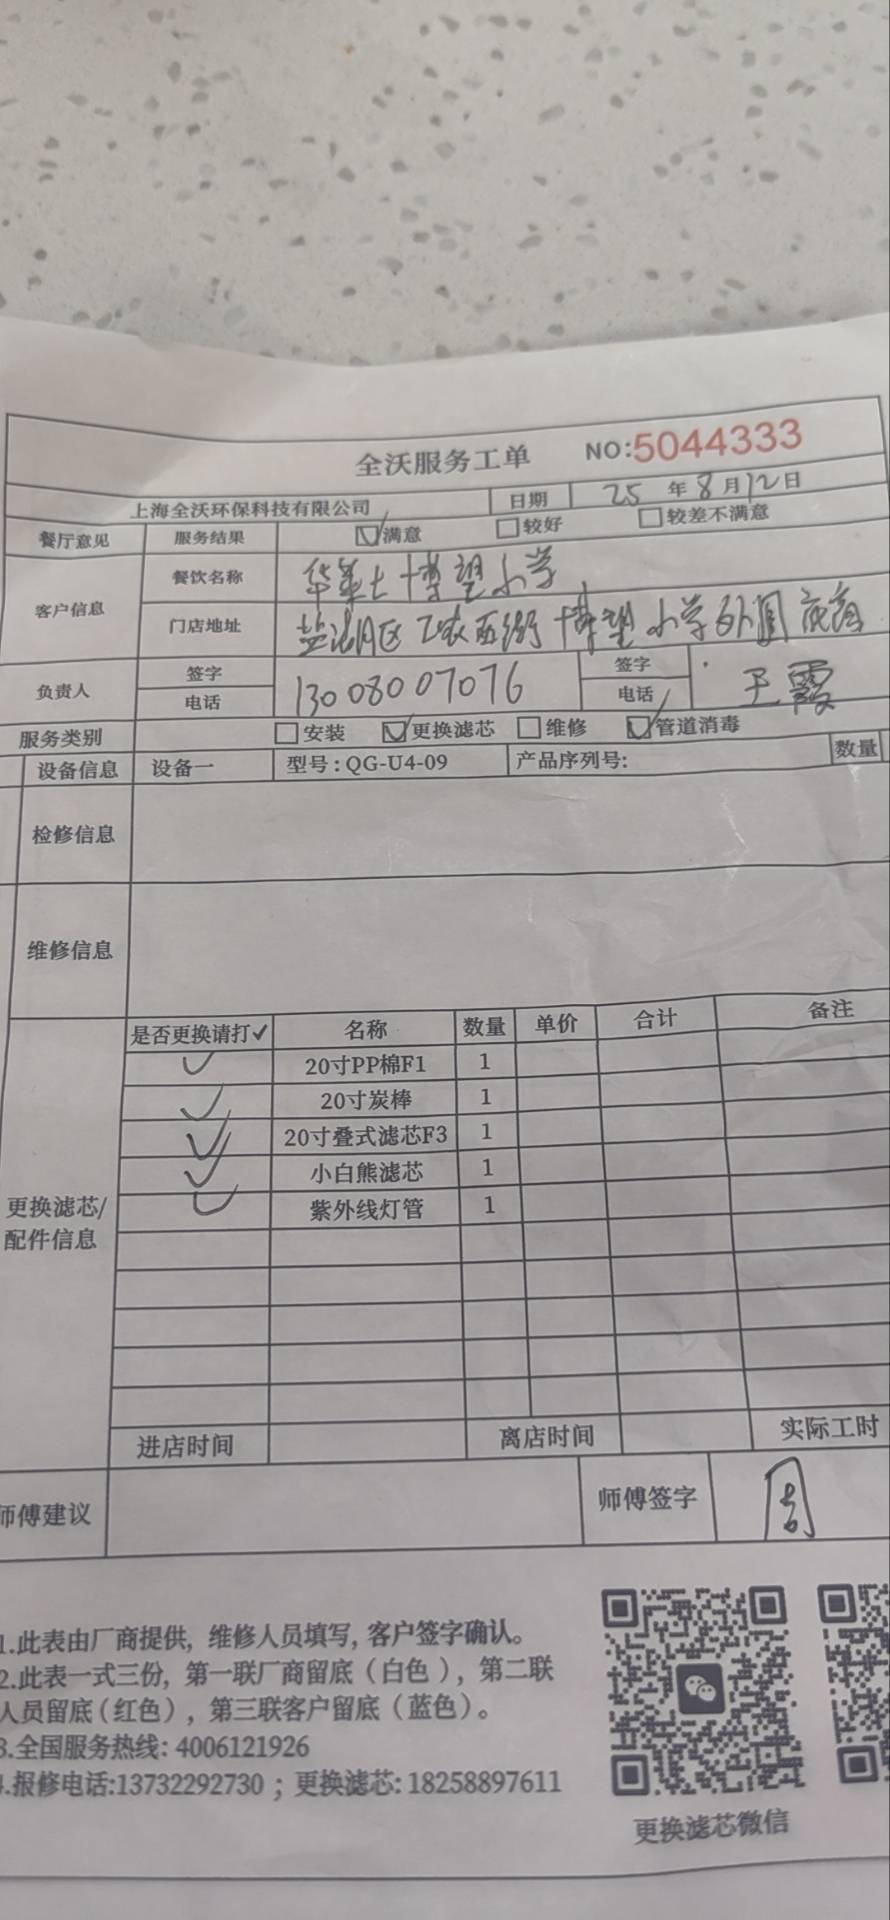 全沃服务工单 NO:5044333
上海全沃环保科技有限公司 日期 25年8月12日
餐厅意见 服务结果 满意 较好 较差不满意
客户信息 餐饮名称 华莱士博望小学
门店地址 盐湖区 西街博望小学外围底商
负责人 签字 13008007076 签字 王霞
电话 电话
服务类别 安装 更换滤芯 维修 管道消毒
设备信息 设备一 型号:QG-U4-09 产品序列号: 数量
检修信息
维修信息
是否更换请打✓ 名称 数量 单价 合计 备注
✓ 20寸PP棉F1 1
✓ 20寸炭棒 1
✓ 20寸叠式滤芯F3 1
✓ 小白熊滤芯 1
更换滤芯/配件信息 ✓ 紫外线灯管 1
进店时间 离店时间 实际工时
师傅建议 师傅签字 周
1.此表由厂商提供,维修人员填写,客户签字确认。
2.此表一式三份,第一联厂商留底(白色),第二联
人员留底(红色),第三联客户留底(蓝色)。
3.全国服务热线:4006121926
4.报修电话:13732292730;更换滤芯:18258897611
更换滤芯微信